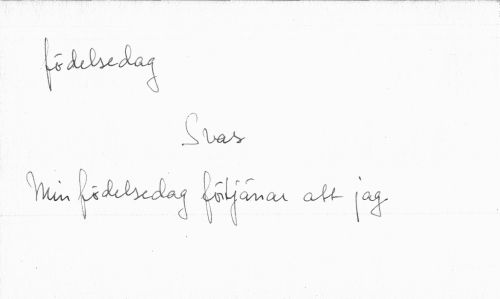 födelsedag
Svas
Min födelsedag förtjänar att jag